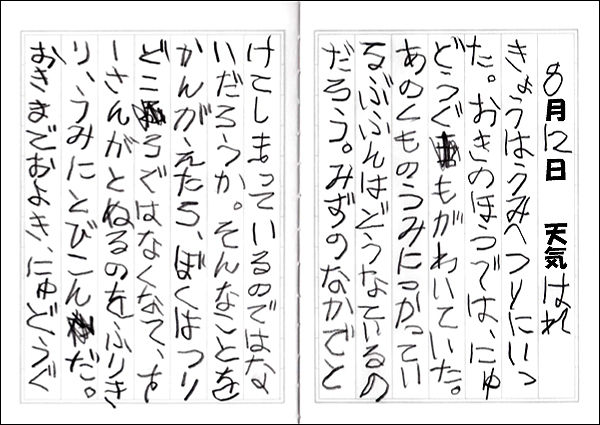 8月12日 天気 はれ
きょうはうみへつりにいっ
た。おきのほうでは、にゅ
どうぐもがわいていた。
あのくものうみにつかってい
るぶぶんはどうなているの
だろう。みずのなかでと
けてしまっているのではな
いだろうか。そんなことを
かんがえたら、ぼくはつり
どころではなくなて、す
ーさんがとめるのをふりき
り、うみにとびこんだ。
おきまでおよき、にゅどうぐ